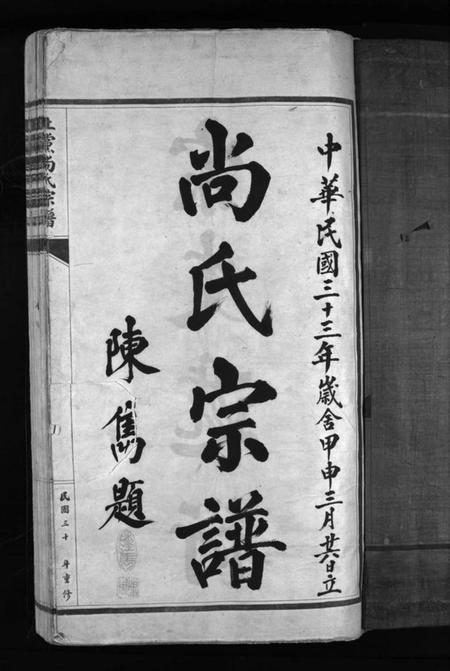 中華民國三十三年歲舍甲申三月廿六日立
尚氏宗譜
陳雋題
上黨尚氏宗譜
民國三十 年重修